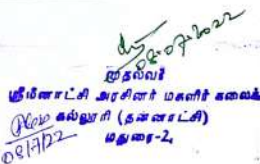 08-07-2022
முதல்வர்
ஸ்ரீமீனாட்சி அரசினர் மகளிர் கலைக்
கல்லூரி (தன்னாட்சி)
08/7/22
மதுரை-2,